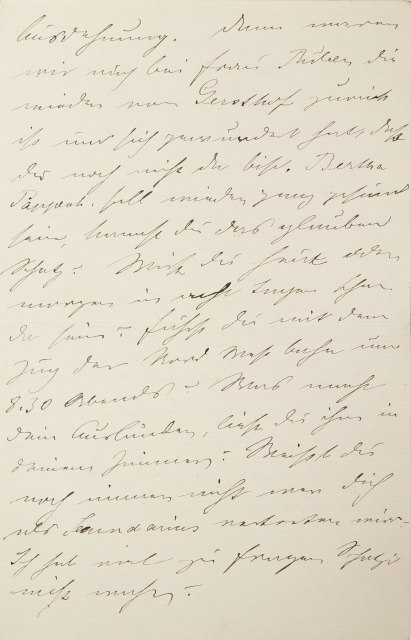 Ausdehnung. Dann waren
wir noch bei Frau Rubens die
wieder von Gersthof zurück
ist und sich gewundert hat, daß
du noch nicht da bist. Bertha
Pappenh. soll wieder ganz gesund
sein, kannst du das glauben
Schatz? Wirst du heut oder
morgen in acht Tagen schon
da sein? Fährst du mit dem
Zug der Nord West bahn um
8.30 Abends? Was macht
dein Ausländer, liest du ihm in
deinem Zimmer? Weißt du
noch immer nicht wer dich
als Secundarius vertreten wird
Ich hab viel zu fragen Schatzi
nicht wahr?